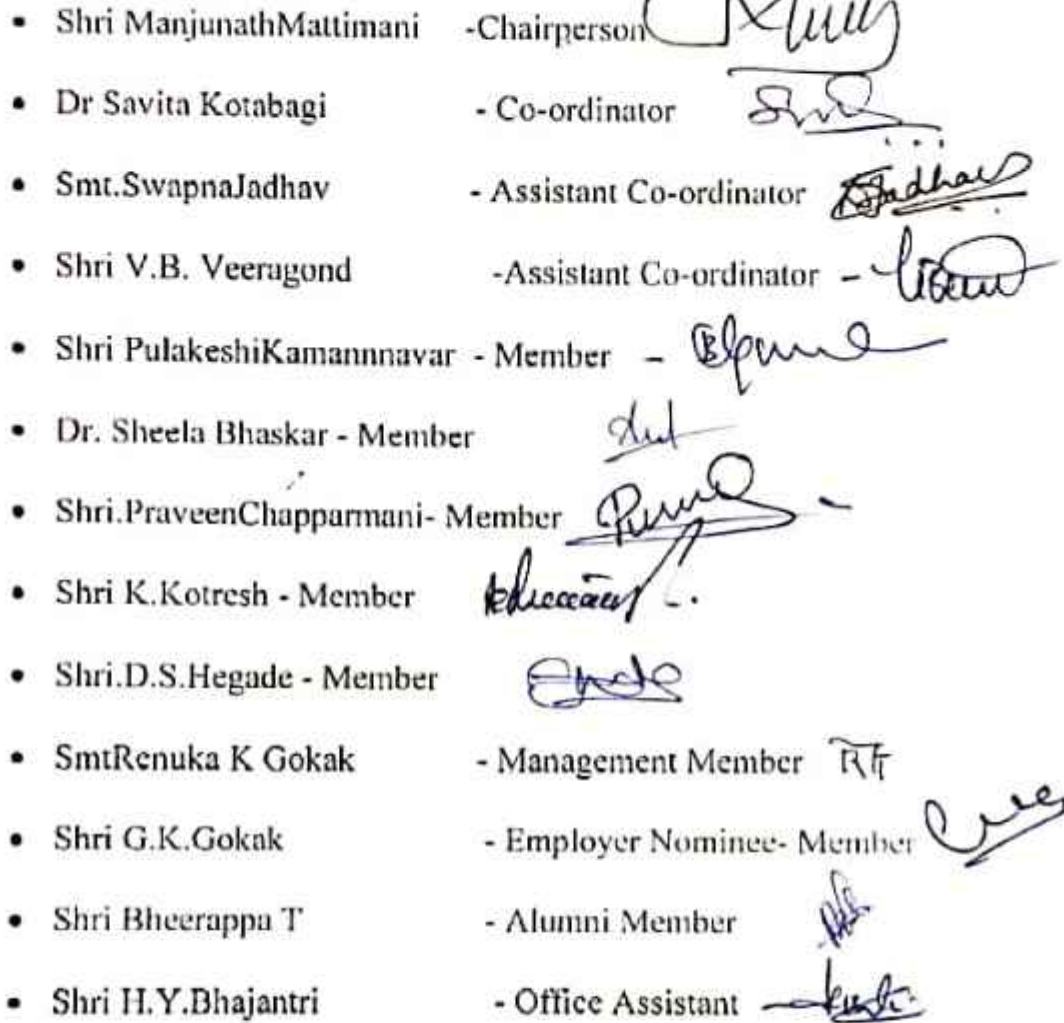 • Shri ManjunathMattimani -Chairperson
• Dr Savita Kotabagi - Co-ordinator
• Smt.SwapnaJadhav - Assistant Co-ordinator Jadhav
• Shri V.B. Veeragond -Assistant Co-ordinator -
• Shri PulakeshiKamannnavar - Member -
• Dr. Sheela Bhaskar - Member
• Shri.PraveenChapparmani- Member
• Shri K.Kotresh - Member
• Shri.D.S.Hegade - Member
• SmtRenuka K Gokak - Management Member
• Shri G.K.Gokak - Employer Nominee- Member
• Shri Bheerappa T - Alumni Member
• Shri H.Y.Bhajantri - Office Assistant